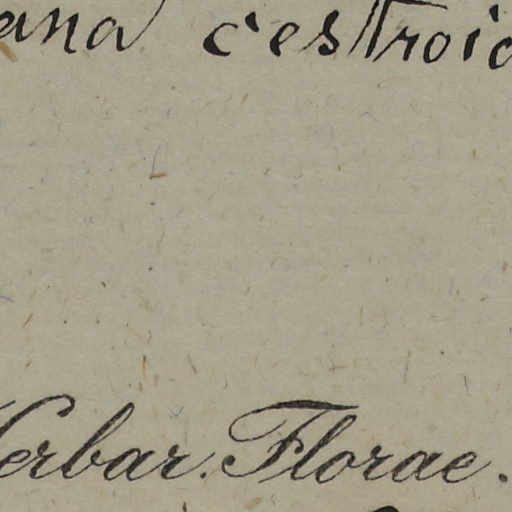 ana cestroid
Herbar. Florae.